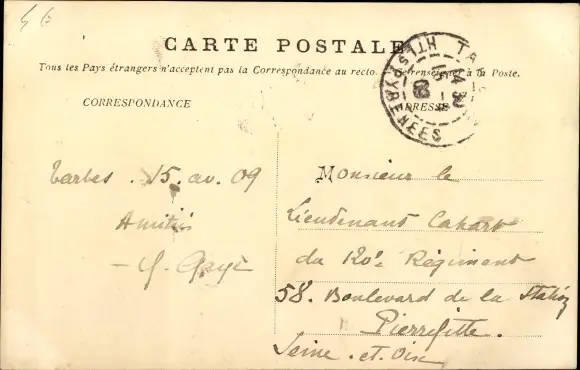 CARTE POSTALE
Tous les Pays étrangers n'acceptent pas la Correspondance au recto. Se renseigner à la Poste.
CORRESPONDANCE
ADRESSE
TA
HTES PYRENEES
Tarbes . 15. av. 09
Amitiés
Monsieur le
Lieutenant Cahart
du 120e Régiment
58. Boulevard de la Station
Pierrefitte.
Seine . et. Oise